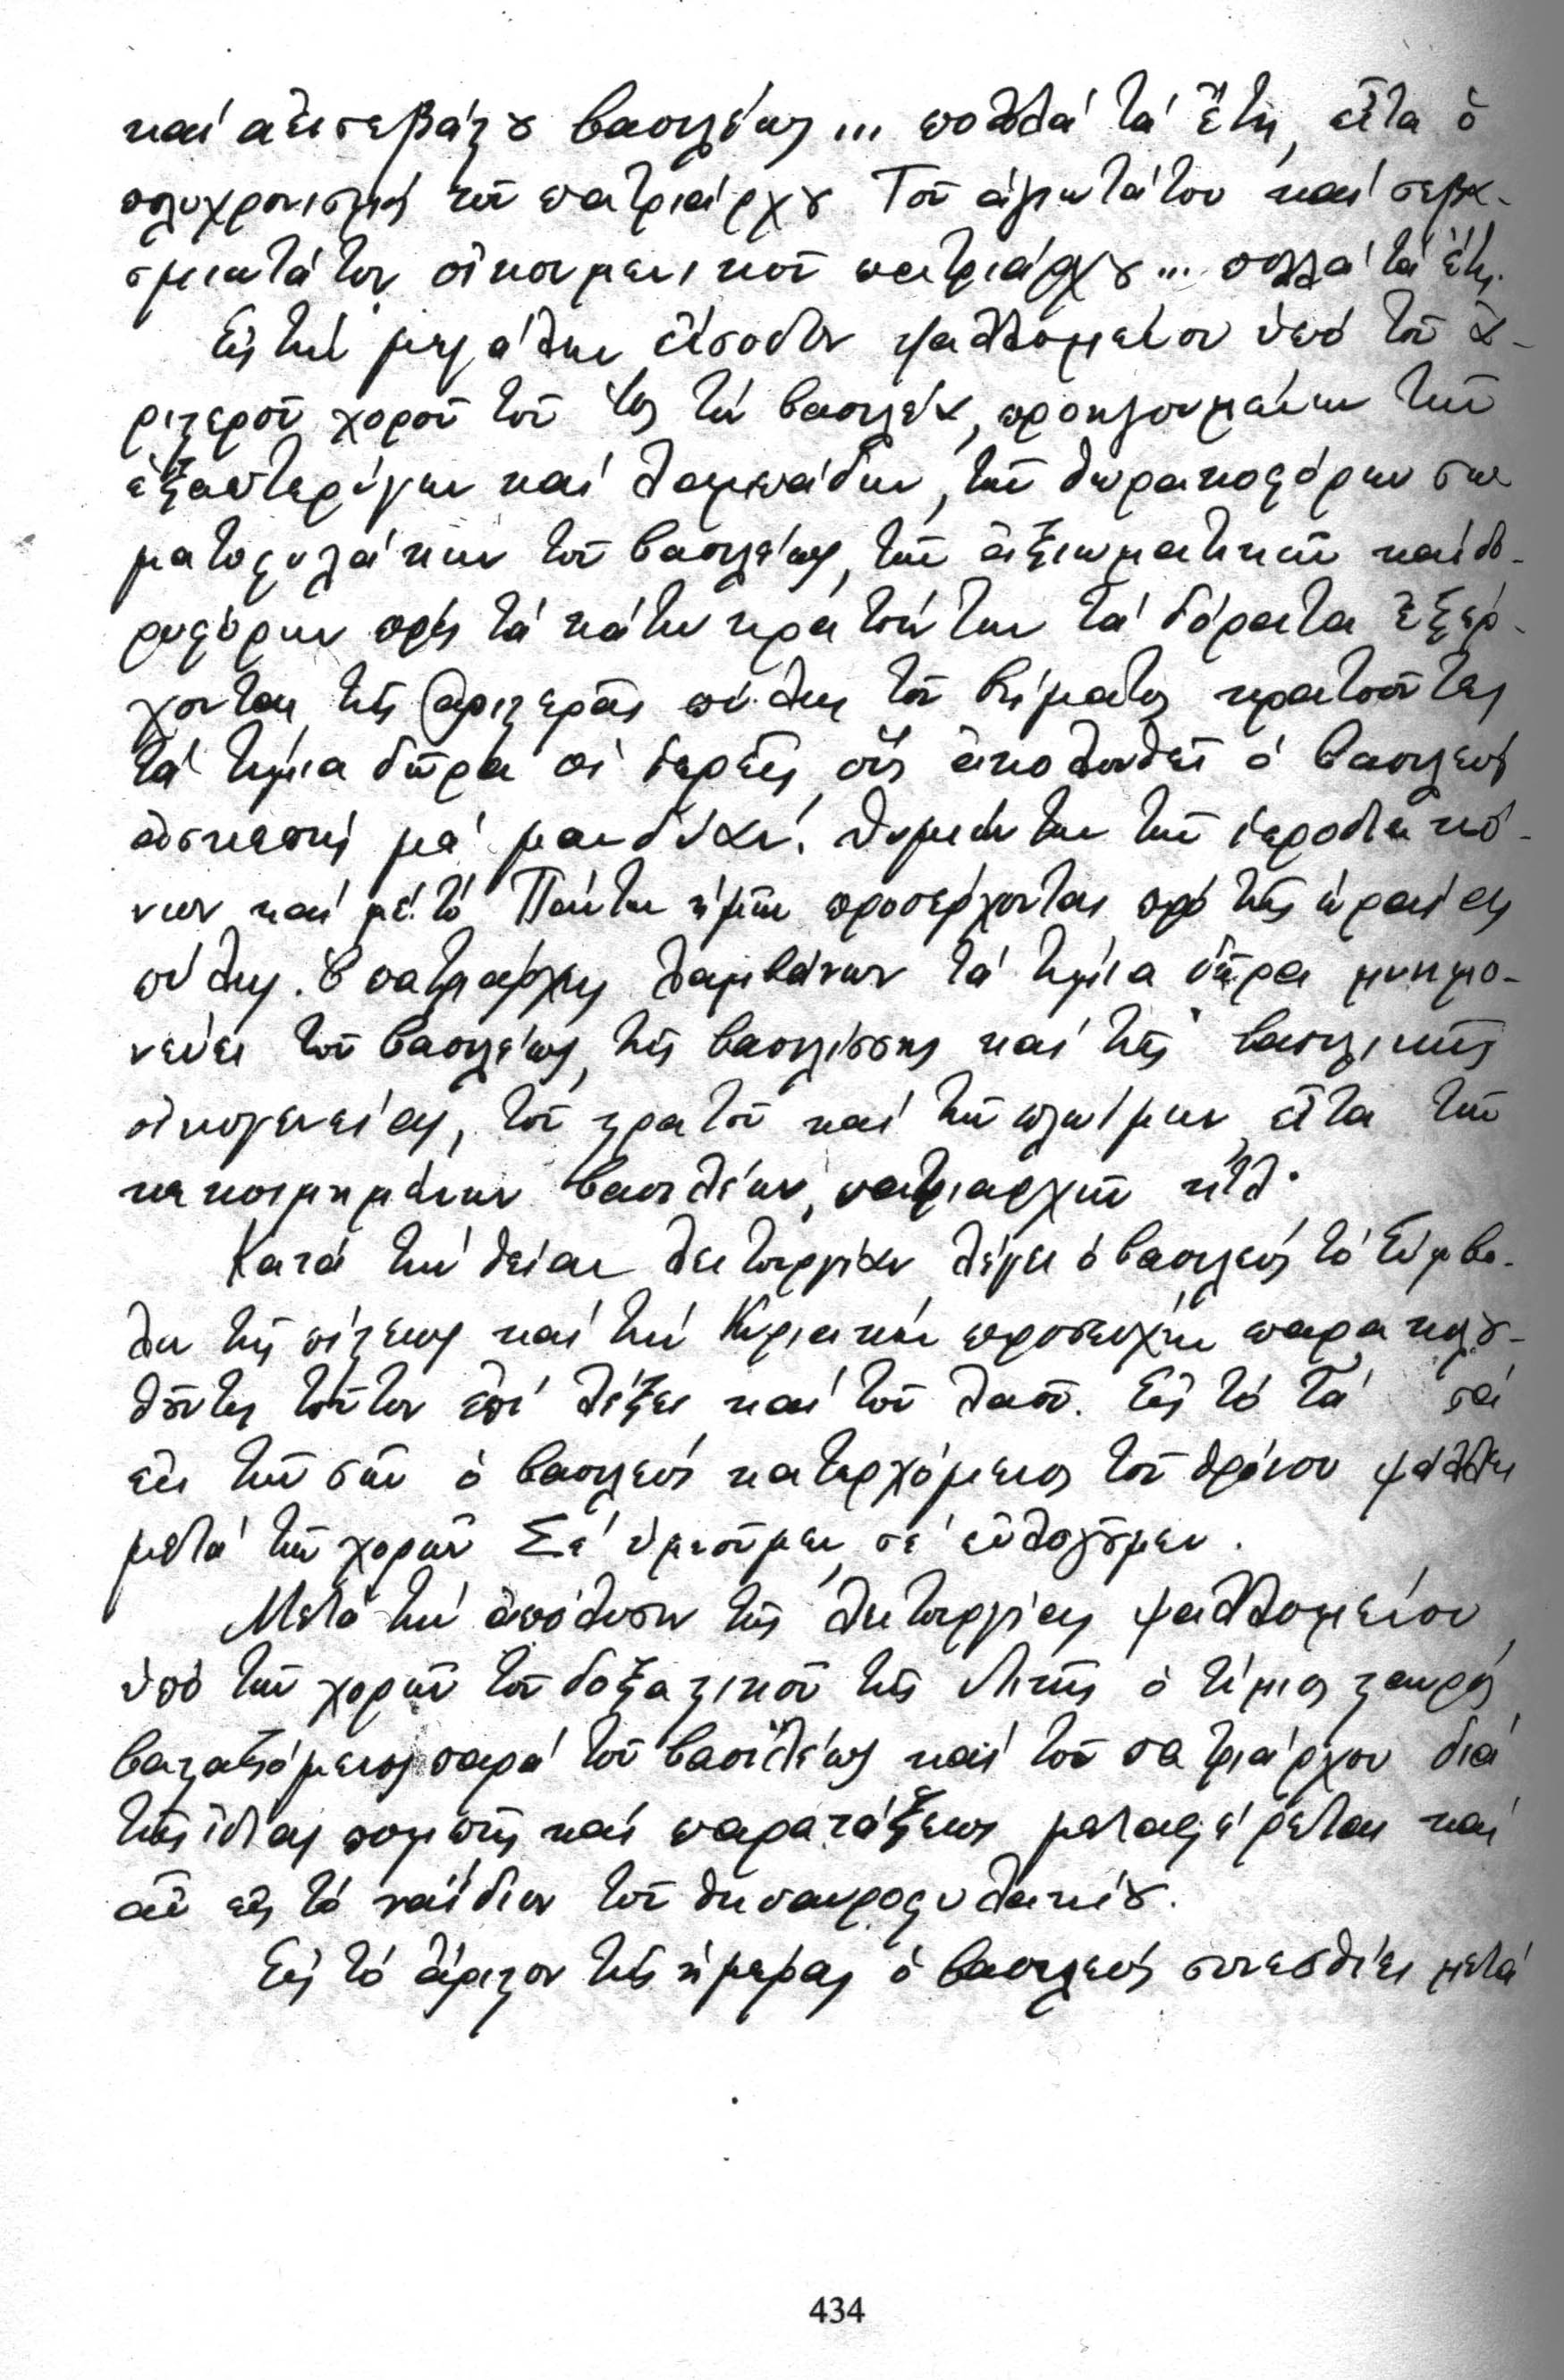 καί ἀεισεβάστου βασιλέως ... πολλά τά ἔτη, εἶτα ὁ
πολυχρονισμός τοῦ πατριάρχου Τοῦ ἁγιωτάτου καί σεβα-
σμιωτάτου οἰκουμενικοῦ πατριάρχου ... πολλά τά ἔτη.
Εἰς τήν μεγάλην εἴσοδον ψαλλομένου ὑπό τοῦ ἀ-
ριστεροῦ χοροῦ τοῦ Ὡς τόν βασιλέα, προηγουμένων τῶν
ἑξαπτερύγων καί λαμπάδων, τῶν θωρακοφόρων σω
ματοφυλάκων τοῦ βασιλέως, τῶν ἀξιωματικῶν καί δο-
ρυφόρων πρός τά κάτω κρατούντων τά δόρατα ἐξέρ-
χονται τῆς ἀριστερᾶς πύλης τοῦ βήματος κρατοῦντες
τά τίμια δῶρα οἱ ἱερεῖς, οὕς ἀκολουθεῖ ὁ βασιλεύς
ἀσκεπής μέ μανδύαν. Θυμιώντων τῶν ἱεροδιακό-
νων καί μέ τό Πάντων ἡμῶν προσέρχονται πρό τῆς ὡραίας
πύλης. Ὁ πατριάρχης λαμβάνων τά τίμια δῶρα μνημο-
νεύει τοῦ βασιλέως, τῆς βασιλίσσης καί τῆς βασιλικῆς
οἰκογενείας, τοῦ στρατοῦ καί τῶν πλωίμων, εἶτα τῶν
κεκοιμημένων βασιλέων, πατριαρχῶν κτλ.
Κατά τήν θείαν λειτουργίαν λέγει ὁ βασιλεύς τό Σύμβο-
λον τῆς πίστεως καί τήν Κυριακήν προσευχήν παρακολου-
θοῦντος τοῦτον ἐπί λέξει καί τοῦ λαοῦ. Εἰς τό Τά σά
ἐκ τῶν σῶν ὁ βασιλεύς κατερχόμενος τοῦ θρόνου ψάλλει
μετά τῶν χορῶν Σέ ὑμνοῦμεν, σέ εὐλογοῦμεν.
Μετά τήν ἀπόλυσιν τῆς λειτουργίας ψαλλομένου
ὑπό τῶν χορῶν τοῦ δοξαστικοῦ τῆς Λιτῆς ὁ τίμιος σταυρός
βασταζόμενος παρά τοῦ βασιλέως καί τοῦ πατριάρχου διά
τῆς ἰδίας πομπῆς καί παρατάξεως μεταφέρεται καί
αὖ εἰς τό ναΐδιον τοῦ θησαυροφυλακίου.
Εἰς τό ἄριστον τῆς ἡμέρας ὁ βασιλεύς συνεσθίει μετά
434